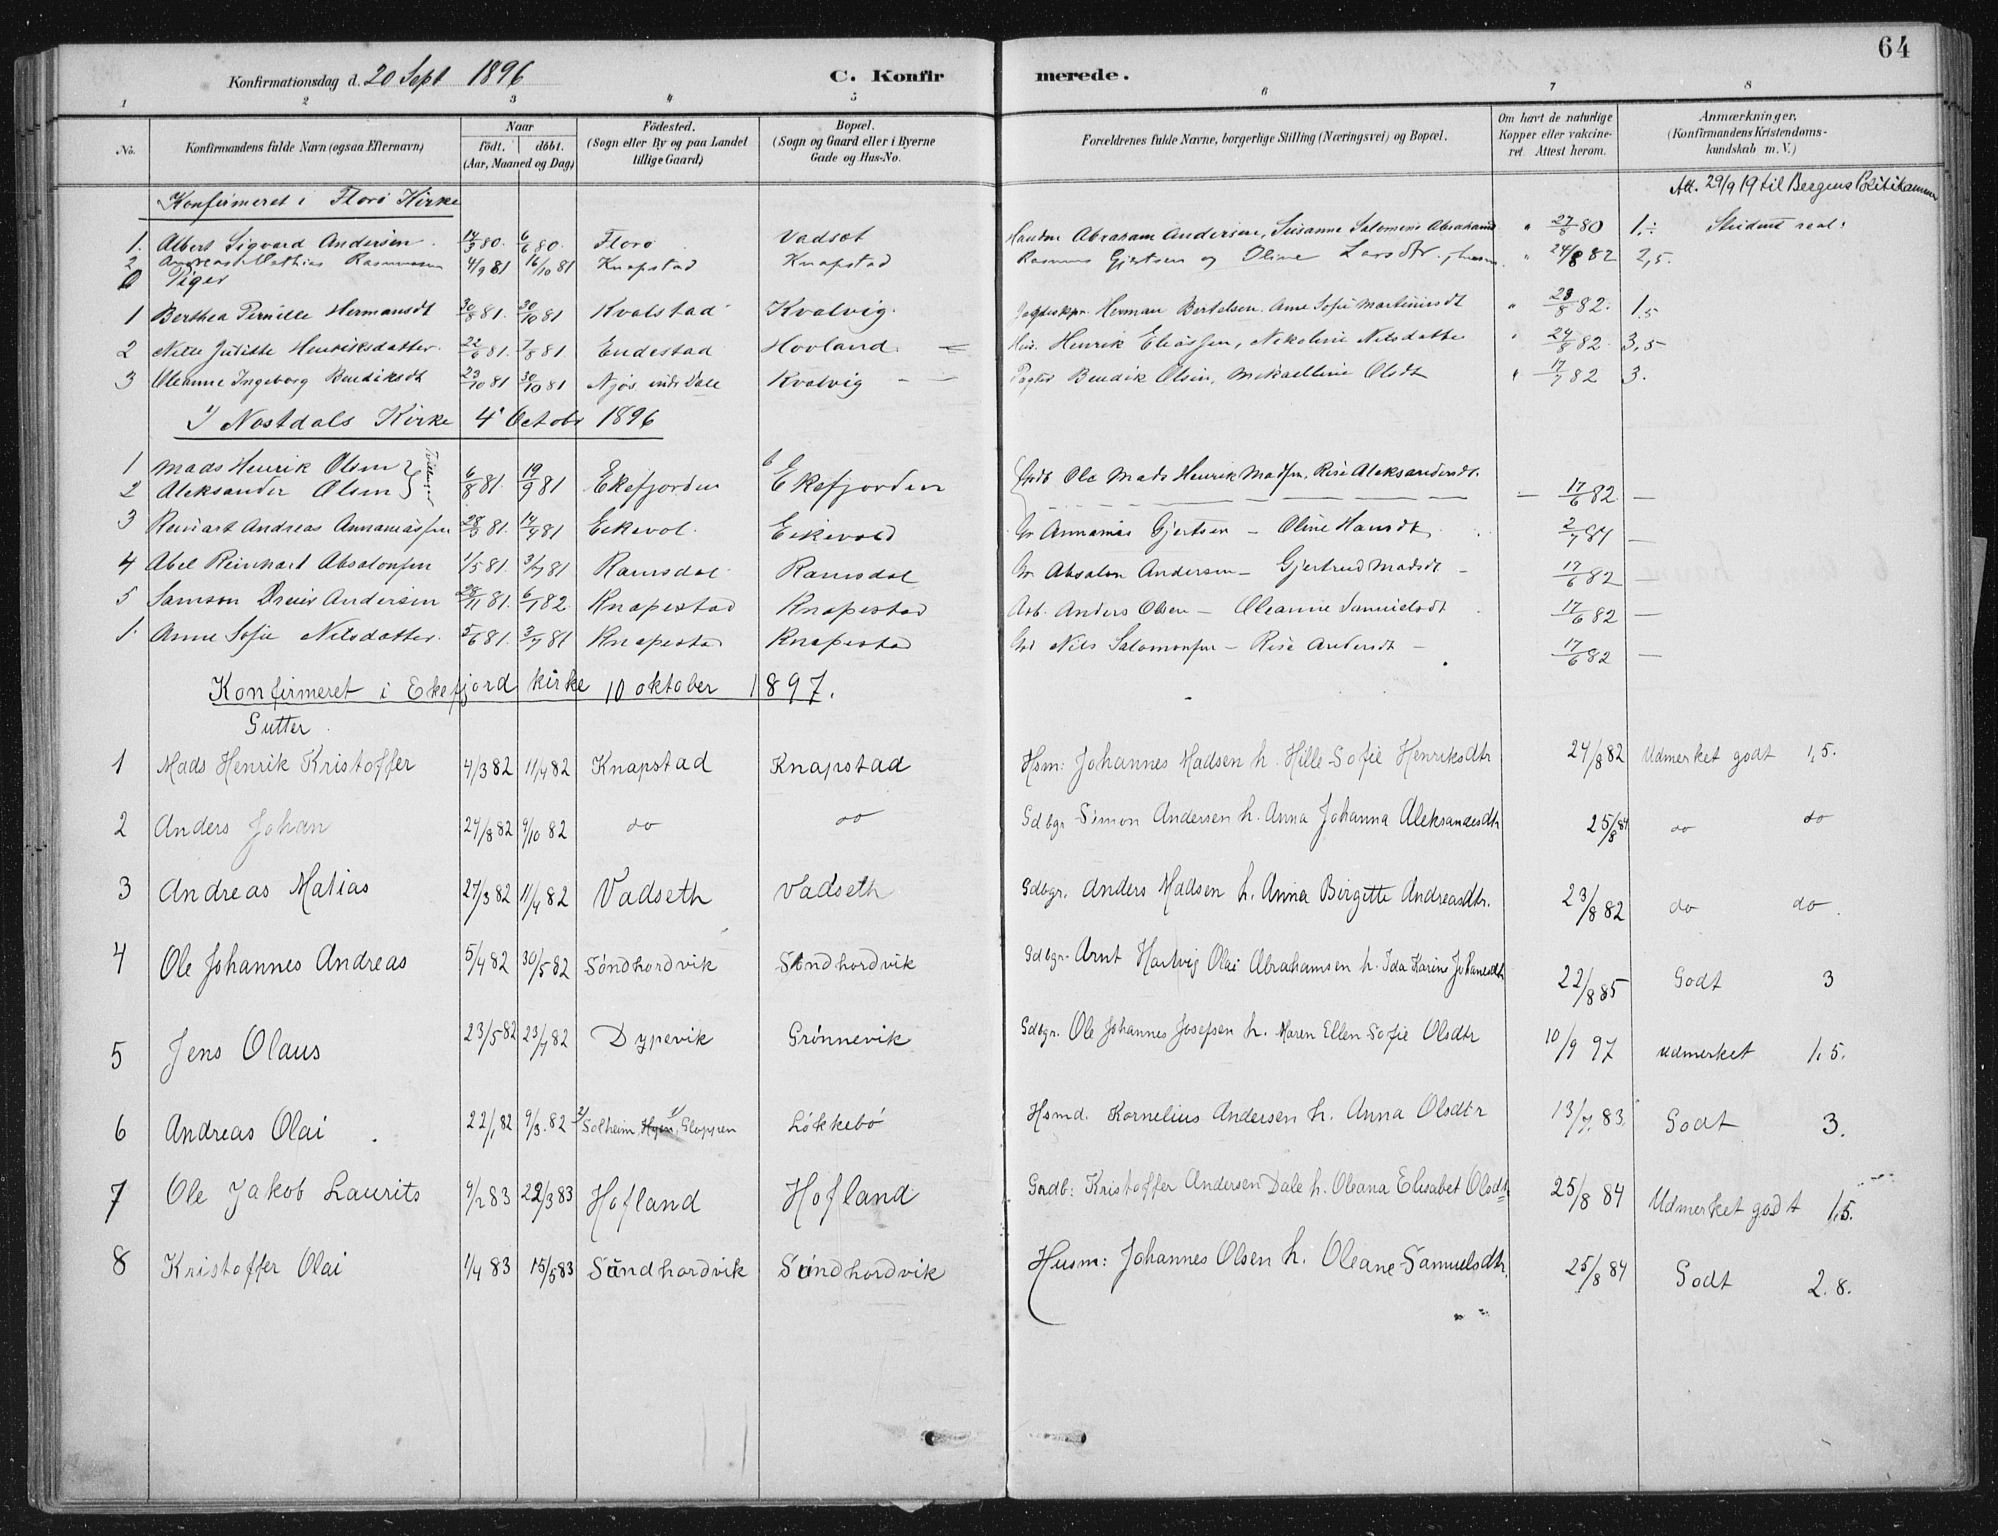 64
Konfirmationsdag d. 20 Sept 1896 C. Konfirmerede.
1 2 3 4 5 6 7 8
No. Konfirmandens fulde Navn (ogsaa Efternavn) Naar födt. döbt. (Aar, Maaned og Dag) Födested. (Sogn eller By og paa Landet tillige Gaard) Bopæl. (Sogn og Gaard eller i Byerne Gade og Hus-No. Forældrenes fulde Navne, borgerlige Stilling (Næringsvei) og Bopæl. Om havt de naturlige Kopper eller vaccineret. Attest herom. Anmærkninger. (Konfirmandens Kristendomskundskab m. V.)
Att. 29/9 19 til Bergens Politikammer
Konfirmeret i Florø Kirke
1. Albert Sigvard Andersen 14/3 80. 6/6 80. Florø Vadset Abraham Andersen, Susanne Salomine " 27/8 80 1.÷ Student real:
2 Andreas Mathias Rasmussen 4/9 81 16/10 81 Knapstad Knapstad Rasmus Gjertsen og Oline Larsdtr. " 24/8 82 2,5.
Piger
1 Berthea Pernille Hermansdt 30/8 81. 30/10 81 Kvalstad Kvalvig. Herman Bertelsen. Ane Sofie Martinusdt " 28/8 82. 1.5
2 Nille Julitte Henriksdatter. 22/6 81. 7/8 81 Endestad Hovland Hus. Henrik Eliassen, Nikoline Nilsdatter " 24/8 82. 3,5
3 Oleanne Ingeborg Bendiksdt 23/10 81 30/10 81 Njøs indr Dale Kvalvig Bendik Olsen, Mikaelline Olsdt " 17/7 82 3.
I Nostdals Kirke 4' Octobr 1896
1 Mads Henrik Olsen } Tvillinger 6/8 81. 19/9 81 Ekefjorden Ekefjorden Ole Mads Henrik Madsen, Rise Aleksandersdt.
2 Aleksander Olsen — 17/6 82. —
3 Reinart Andreas Annaniassen 28/3 81. 17/4 81 Eikevol. Eikevold Gr Annanias Gjertsen – Oline Hansdt 2/7 84 —
4 Abel Reinhart Absalonsen 1/5 81. 3/7 81 Ramsdal Ramsdal Gr. Absalon Andersen – Gjertrud Madsdt – 17/6 82 —
5 Samson Dreier Andersen 28/11 81. 6/1 82. Knapestad Knapestad Arb. Anders Olsen – Oleanne Samuelsdt 17/6 82 —
1. Anne Sofie Nilsdatter. 5/6 81. 3/7 81 Knapestad Knapestad Nils Salomonsen – Rise Arntsdt – 17/6 82 —
Konfirmeret i Ekefjord kirke 10 oktober 1897.
Gutter
1 Mads Henrik Kristoffer 4/3 82 11/4 82 Knapstad Knapstad Hsm: Johannes Madsen h. Hille Sofie Henriksdtr 24/8 82 Udmerket godt 1,5.
2 Anders Johan 24/8 82 9/10 82 do do Gdbgr Simon Andersen h. Anna Johanna Aleksandesdtr 25/8 84 do do
3 Andreas Matias 27/3 82 11/4 82 Vadseth Vadseth Gdbgr. Anders Madsen h. Anna Birgitte Andreasdtr. 23/8 82 do do
4 Ole Johannes Andreas 5/4 82 30/5 82 Søndhordvik Søndhordvik Gdbgr. Arnt Hartvig Olai Abrahamsen h. Ida Karine Johanesdtr 22/8 85 Godt 3
5 Jens Olaus 23/5 82 23/7 82 Dypevik Grønnevik Gdbgr. Ole Johannes Josefsen h. Maren Ellen Sofie Olsdtr 10/9 97 Udmerket 1,5.
6 Andreas Olai 22/1 82 9/3. 82 Solheim, Hyen, Gloppen Løkkebø Hsmd. Kornelius Andersen h. Anna Olsdtr 13/7. 83. Godt 3.
7 Ole Jakob Laurits 9/2 83 22/3 83 Hofland Hofland Grdb: Kristoffer Andersen Dale h. Oleana Elisabet Olsdtr 25/8 84 Udmerket godt 1,5.
8 Kristoffer Olai 1/4 83 15/5 83 Sündhordvik Sundhordvik Husm: Johannes Olsen h. Oleane Samuelsdtr. 25/8 84 Godt 2.8.